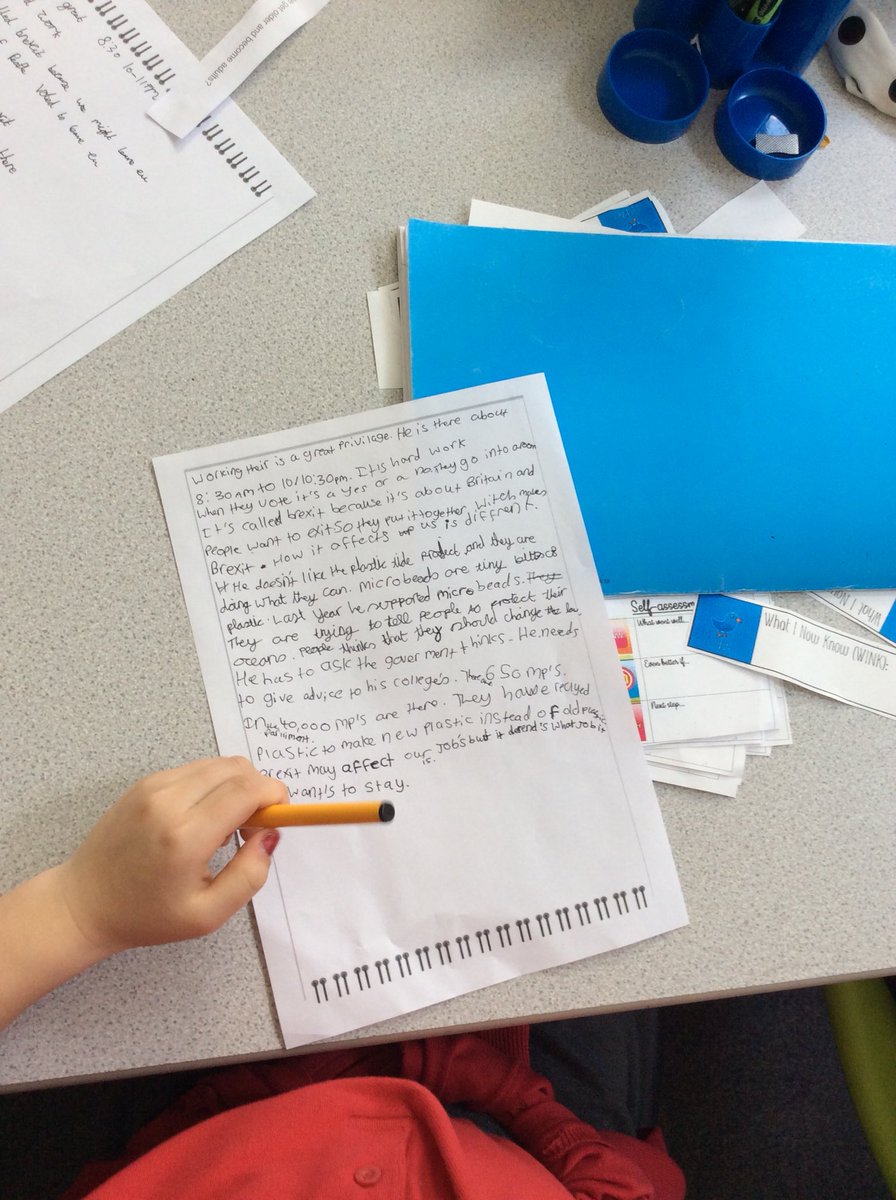 get older and become adults?
great
work
8:30 10-11pm
brexit because we might leave eu
voted to leave eu
Working their is a great privilage. He is there about
8:30AM to 10/10:30pm. It is hard work
when they vote it's a yes or a no. They go into a room
It's called brexit because it's about Britain and
People want to exit So they put it together, witch makes
Brexit. How it affects us is diffrent.
He doesn't like the plastic tide project and they are
doing what they can. microbeads are tiny bittsof
plastic. Last year he supported micro beads. They
They are trying to tell people to protect their
oceans. people thinks that they should change the law
He has to ask the goverment thinks. He needs
to give advice to his colleges. There are 650 mp's.
In the parliment. 40,000 mp's are there. They have recyed
Plastic to make new plastic instead of old plastic
brexit may affect our job's but it depend's what job it is.
want's to stay.
Self-assessm
What went well...
Even better if...
Next step...
What I Now Know (WINK):
What I Now